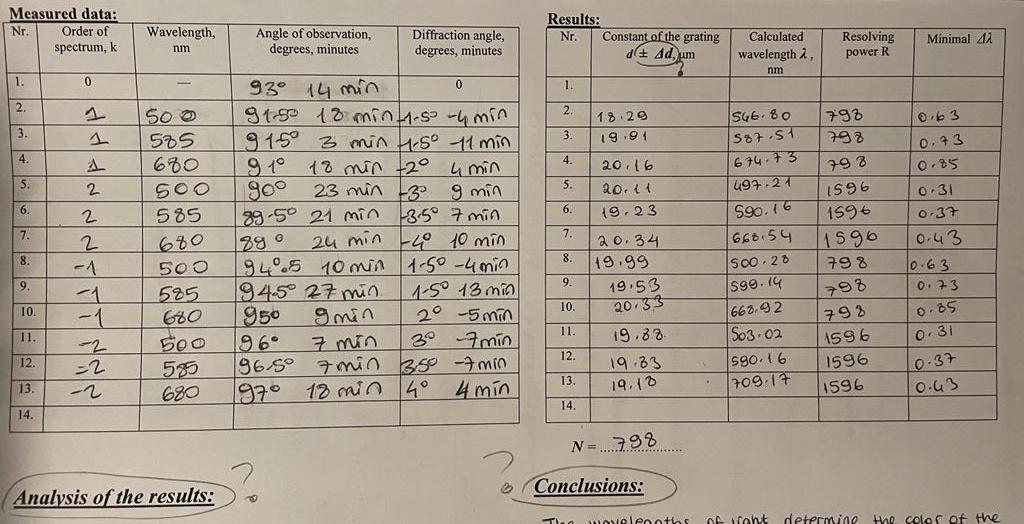 Measured data:
Nr. Order of spectrum, k Wavelength, nm Angle of observation, degrees, minutes Diffraction angle, degrees, minutes
1. 0 — 93° 14 min 0
2. 1 500 91.5° 18 min -1.5° -4 min
3. 1 585 91.5° 3 min -1.5° -11 min
4. 1 680 91° 18 min -2° 4 min
5. 2 500 90° 23 min -3° 9 min
6. 2 585 89.5° 21 min -3.5° 7 min
7. 2 680 89° 24 min -4° 10 min
8. -1 500 94°.5 10 min 1.5° -4 min
9. -1 585 94.5° 27 min 1.5° 13 min
10. -1 680 95° 9 min 2° -5 min
11. -2 500 96° 7 min 3° -7 min
12. -2 585 96.5° 7 min 3.5° -7 min
13. -2 680 97° 18 min 4° 4 min
14.
Analysis of the results: ?
Results:
Nr. Constant of the grating d ± Δd, μm Calculated wavelength λ, nm Resolving power R Minimal Δλ
?
1.
2. 18.29 546.80 798 0.63
3. 19.91 587.51 798 0.73
4. 20.16 674.73 798 0.85
5. 20.11 497.21 1596 0.31
6. 19.23 590.16 1596 0.37
7. 20.34 668.54 1596 0.43
8. 19.99 500.28 798 0.63
9. 19.53 599.14 798 0.73
10. 20.33 668.92 798 0.85
11. 19.88 503.02 1596 0.31
12. 19.83 590.16 1596 0.37
13. 19.18 709.17 1596 0.43
14.
N = 798
? Conclusions:
The wavelengths of light determine the color of the